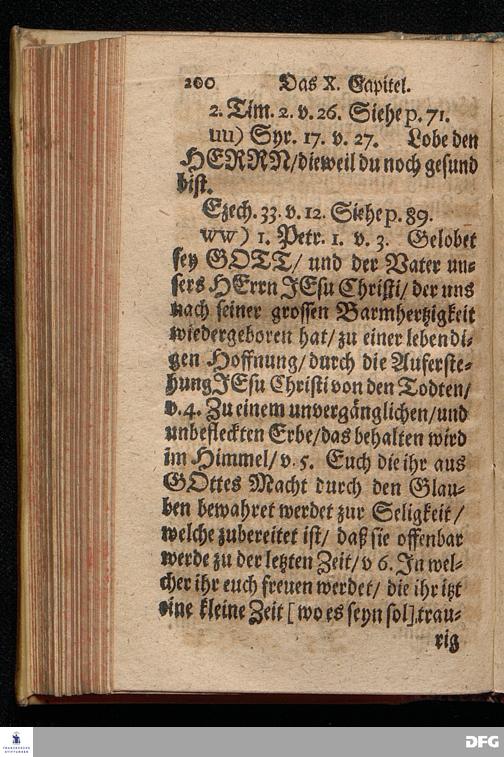 200 Das X. Capitel.
2. Tim. 2. v. 26. Siehe p. 71.
uu) Syr. 17. v. 27. Lobe den
HERRN/dieweil du noch gesund
bist.
Ezech. 33. v. 12. Siehe p. 89.
ww) 1. Petr. 1. v. 3. Gelobet
sey GOTT/ und der Vater un-
sers HErrn JEsu Christi/ der uns
nach seiner grossen Barmhertzigkeit
wiedergeboren hat/ zu einer lebendi-
gen Hoffnung/ durch die Auferste-
hung JEsu Christi von den Todten/
v. 4. Zu einem unvergänglichen/und
unbefleckten Erbe/das behalten wird
im Himmel/ v. 5. Euch die ihr aus
GOttes Macht durch den Glau-
ben bewahret werdet zur Seligkeit/
welche zubereitet ist/ daß sie offenbar
werde zu der letzten Zeit/ v 6. In wel-
cher ihr euch freuen werdet/ die ihr itzt
eine kleine Zeit [wo es seyn sol] trau-
rig
FRANCKESCHE
STIFTUNGEN
DFG